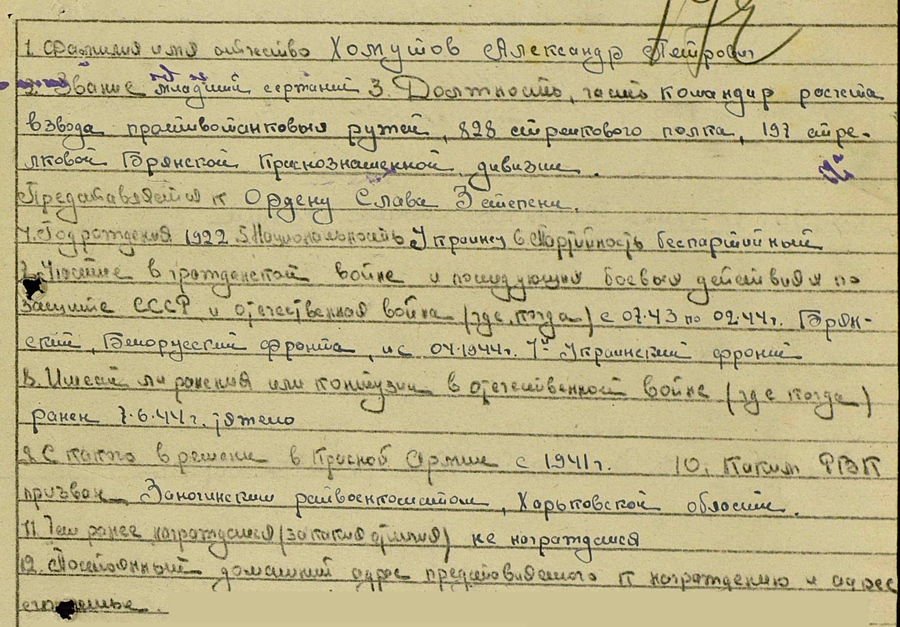 1. Фамилия имя отчество Хомутов Александр Петрович
2. Звание младший сержант 3. Должность, часть командир расчета
взвода противотанковых ружей, 828 стрелкового полка, 197 стре-
лковой Брянской Краснознаменной дивизии.
Представляется к Ордену Слава 3 степени.
4. Год рождения 1922 5. Национальность Украинец 6. Партийность беспартийный
7. Участие в гражданской войне и последующих боевых действиях по
защите СССР и отечественная война (где, когда) с 07.43 по 02.44г. Брян-
ский, Белорусский фронта, и с 04.1944г. 1й Украинский фронт
8. Имеет ли ранения или контузии в отечественной войне (где когда)
ранен 7.6.44г. тяжело
9. С какого времени в Красной Армии с 1941г. 10. Каким РВК
призван Заночинским райвоенкоматом, Харьковской области.
11. Чем ранее награждался (за какие отличия) не награждался
12. Постоянный домашний адрес представляемого к награждению и адрес